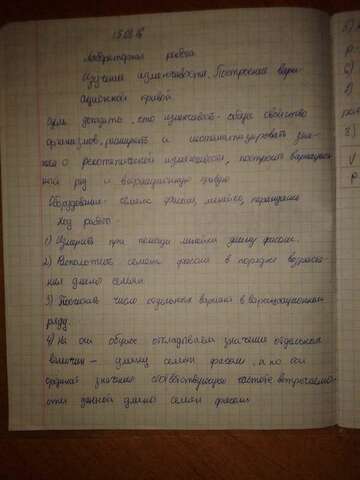 Лабораторная работа
Изучение изменчивости. Построение вари-
ационной кривой.
доказать, что изменчивость - общее свойство
организмов, расширить и систематизировать зна-
о генотипической изменчивости, построить вариацион-
ный ряд и вариационную кривую
Оборудование: семена фасоли, линейка, карандаши
Ход работы.
1) Измерить при помощи линейки длину фасоли.
2) Расположите семена фасоли в порядке возраста-
ния длины семени
3) число отдельных вариант в вариационном
ряду.
4) На оси абсцисс откладываем значения отдельных
величин - длину семян фасоли, а по оси
ординат значения соответствующие частоте встречаемо-
сти данной длины семян фасоли